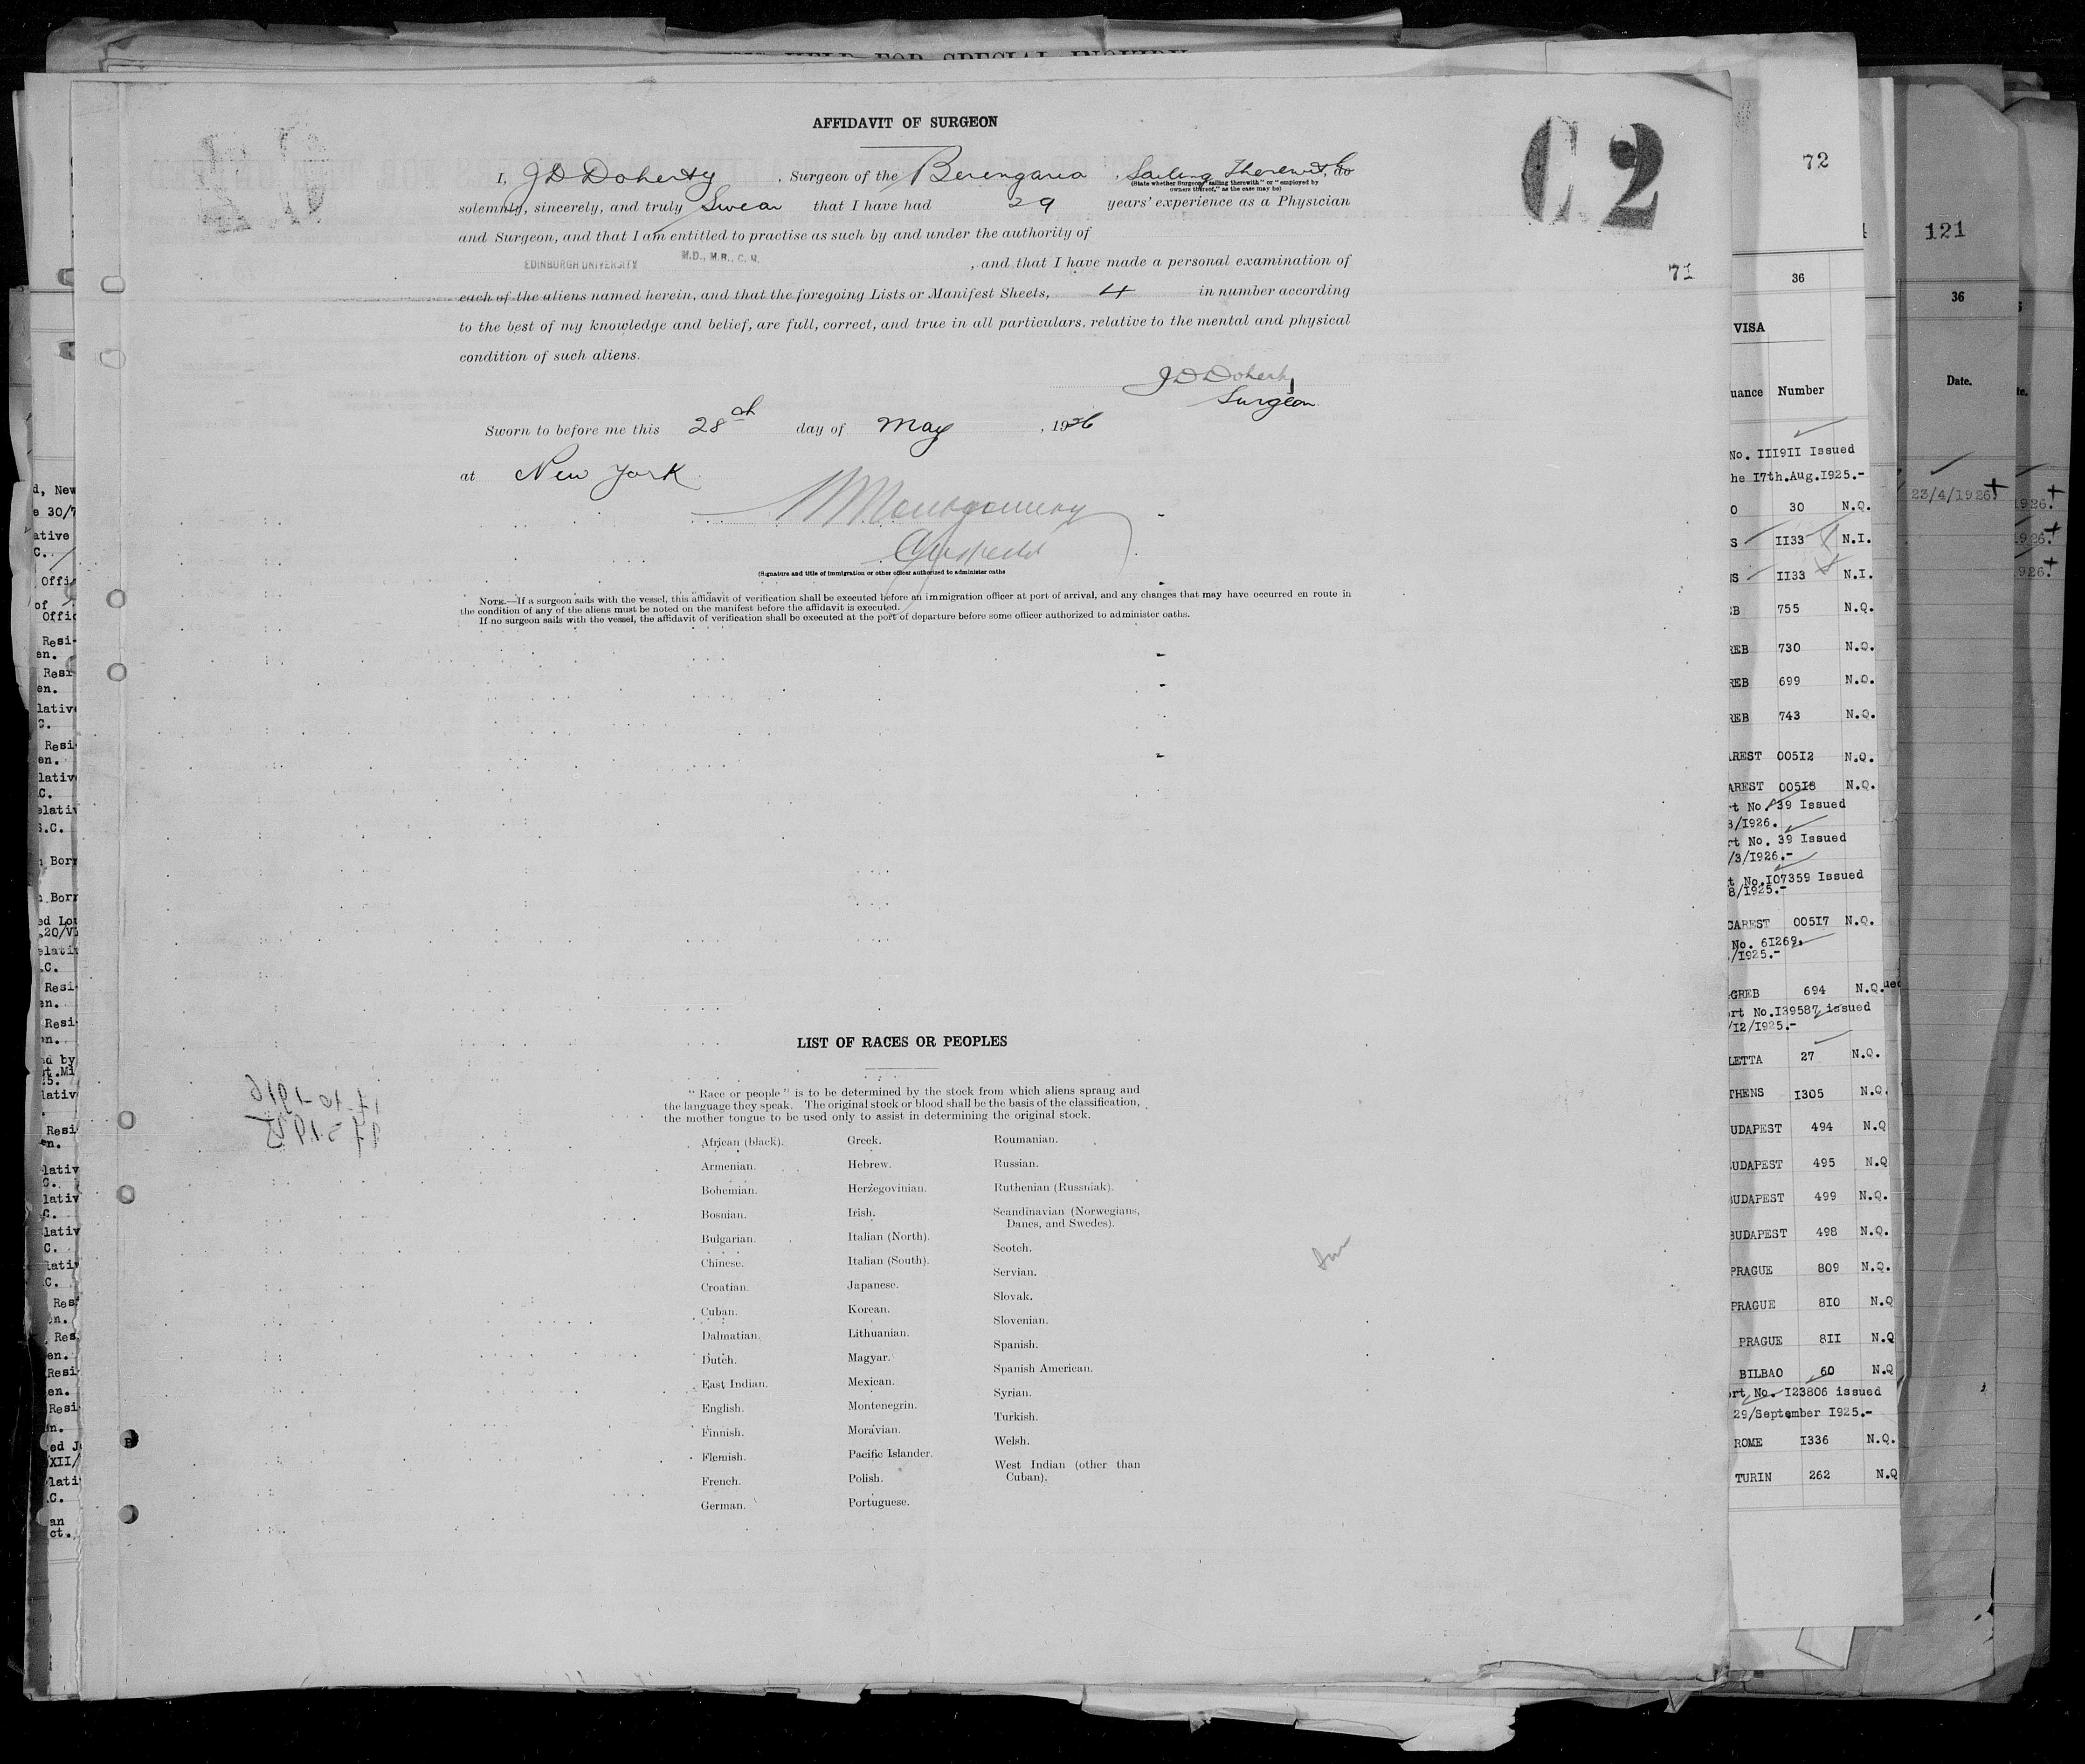 HELD FOR SPECIAL INQUIRY
AFFIDAVIT OF SURGEON
C2
72
121
71
I, J D Doherty, Surgeon of the Berengaria, Sailing Therewith, do
(State whether Surgeon "sailing therewith" or "employed by
owners thereof," as the case may be)
solemnly, sincerely, and truly Swear that I have had 29 years' experience as a Physician
and Surgeon, and that I am entitled to practise as such by and under the authority of
EDINBURGH UNIVERSITY M.D., M.B., C. M. , and that I have made a personal examination of
each of the aliens named herein, and that the foregoing Lists or Manifest Sheets, 4 in number according
to the best of my knowledge and belief, are full, correct, and true in all particulars, relative to the mental and physical
condition of such aliens.
J D Doherty
Surgeon
Sworn to before me this 28th day of May, 1926
at New York.
Montgomery
(Signature and title of immigration or other officer authorized to administer oaths
NOTE.—If a surgeon sails with the vessel, this affidavit of verification shall be executed before an immigration officer at port of arrival, and any changes that may have occurred en route in
the condition of any of the aliens must be noted on the manifest before the affidavit is executed.
If no surgeon sails with the vessel, the affidavit of verification shall be executed at the port of departure before some officer authorized to administer oaths.
LIST OF RACES OR PEOPLES
"Race or people" is to be determined by the stock from which aliens sprang and
the language they speak. The original stock or blood shall be the basis of the classification,
the mother tongue to be used only to assist in determining the original stock.
African (black).
Armenian.
Bohemian.
Bosnian.
Bulgarian.
Chinese.
Croatian.
Cuban.
Dalmatian.
Dutch.
East Indian.
English.
Finnish.
Flemish.
French.
German.
Greek.
Hebrew.
Herzegovinian.
Irish.
Italian (North).
Italian (South).
Japanese.
Korean.
Lithuanian.
Magyar.
Mexican.
Montenegrin.
Moravian.
Pacific Islander.
Polish.
Portuguese.
Roumanian.
Russian.
Ruthenian (Russniak).
Scandinavian (Norwegians,
Danes, and Swedes).
Scotch.
Servian.
Slovak.
Slovenian.
Spanish.
Spanish American.
Syrian.
Turkish.
Welsh.
West Indian (other than
Cuban).
36
VISA
uance Number
No. III9II Issued
he I7th.Aug.I925.-
O 30 N.Q.
S II33 N.I.
S II33 N.I.
B 755 N.Q.
REB 730 N.Q.
REB 699 N.Q.
REB 743 N.Q.
AREST 005I2 N.Q.
AREST 005I8 N.Q.
rt No. 39 Issued
3/I926.
rt No. 39 Issued
/3/I926.-
t No.I07359 Issued
8/I925.-
CAREST 005I7 N.Q.
No. 6I269.
/I925.-
GREB 694 N.Q.
rt No.I39587 issued
/I2/I925.-
LETTA 27 N.Q.
THENS I305 N.Q.
UDAPEST 494 N.Q
UDAPEST 495 N.Q
UDAPEST 499 N.Q.
BUDAPEST 498 N.Q.
PRAGUE 809 N.Q.
PRAGUE 8I0 N.Q
PRAGUE 8II N.Q
BILBAO 60 N.Q
rt No. I23806 issued
29/September I925.-
ROME I336 N.Q.
TURIN 262 N.Q
36
Date.
23/4/1926.
1926.
1926.
926.